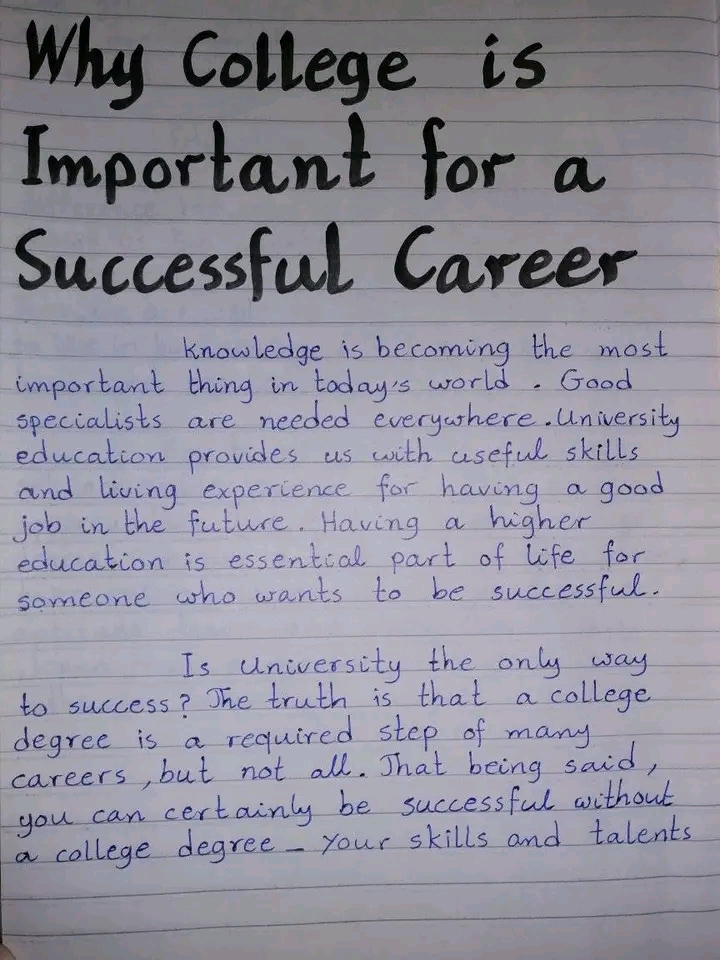 Why College is
Important for a
Successful Career
Knowledge is becoming the most
important thing in today's world . Good
specialists are needed everywhere . University
education provides us with useful skills
and living experience for having a good
job in the future. Having a higher
education is essential part of life for
someone who wants to be successful.
Is University the only way
to success? The truth is that a college
degree is a required step of many
careers , but not all. That being said ,
you can certainly be successful without
a college degree – your skills and talents